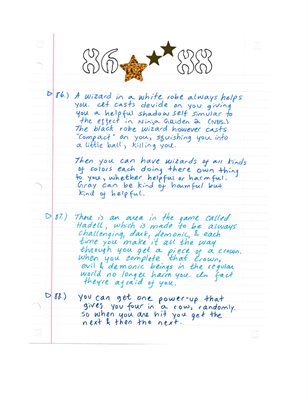 86 88
86.) A wizard in a white robe always helps
you. Let casts devide on you giving
you a helpful shadow self simular to
the effect in Ninja Gaiden 2 (NES.)
The black robe wizard however casts
"Compact" on you, squishing you into
a little ball, killing you.
Then you can have wizards of all kinds
of colors each doing there own thing
to you, whether helpful or harmful.
Gray can be kind of harmful but
kind of helpful.
87.) There is an area in the game called
Hadell, which is made to be always
challenging, dark, demonic, & each
time you make it all the way
through you get a piece of a crown.
When you complete that crown,
evil & demonic beings in the regular
world no longer harm you. In fact
they're afraid of you.
88.) You can get one power-up that
gives you four in a row, randomly.
So when you are hit you get the
next & then the next.